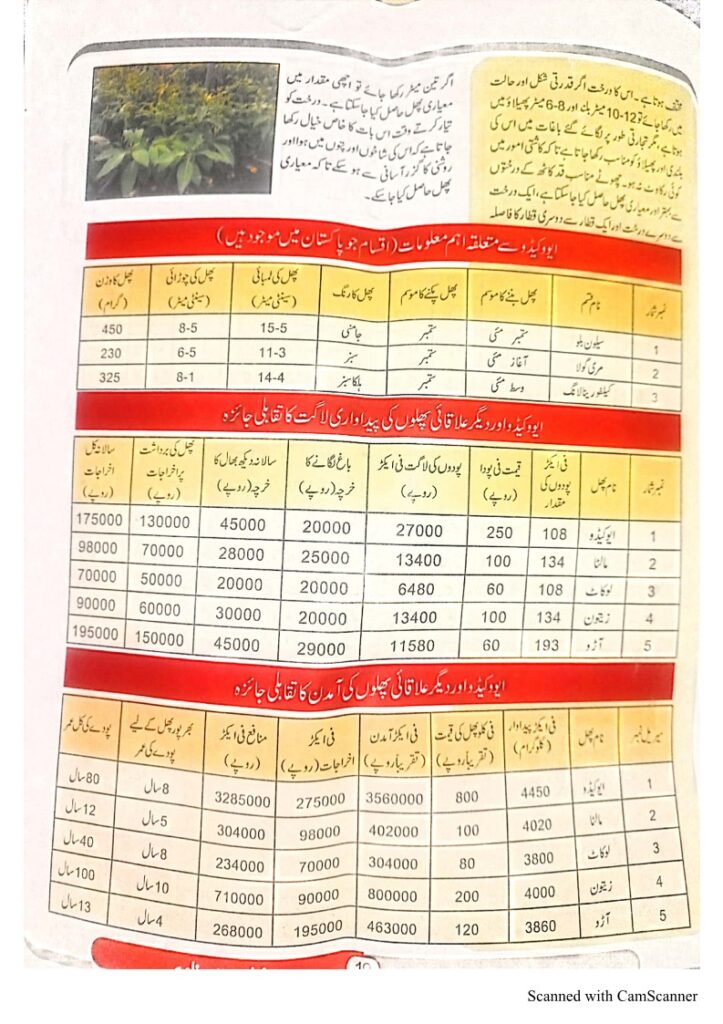 مختلف ہوتا ہے۔ اس کا درخت اگر قدرتی شکل اور حالت
میں رکھا جائے تو 12-10 میٹر بلند اور 8-6 میٹر پھیلاؤ میں
ہوتا ہے، مگر تجارتی طور پر لگائے گئے باغات میں اس کی
بلندی اور پھیلاؤ کو مناسب رکھا جاتا ہے تاکہ کاشتی امور میں
کوئی رکاوٹ نہ ہو۔ چھوٹے مناسب قد کاٹھ کے درختوں
سے بہتر اور معیاری پھل حاصل کیا جا سکتا ہے، ایک درخت
سے دوسرے درخت اور ایک قطار سے دوسری قطار کا فاصلہ
اگر تین میٹر رکھا جائے تو اچھی مقدار میں
معیاری پھل حاصل کیا جا سکتا ہے۔ درخت کو
تیار کرتے وقت اس بات کا خاص خیال رکھا
جاتا ہے کہ اس کی شاخوں اور پتوں میں ہوا اور
روشنی کا گزر آسانی سے ہو سکے تاکہ معیاری
پھل حاصل کیا جا سکے۔
ایووکیڈو سے متعلقہ اہم معلومات (اقسام جو پاکستان میں موجود ہیں)
نمبر شمار نام قسم پھل بننے کا موسم پھل پکنے کا موسم پھل کا رنگ پھل کی لمبائی (سینٹی میٹر) پھل کی چوڑائی (سینٹی میٹر) پھل کا وزن (گرام)
1 سیلون بلو ستمبر مئی ستمبر جامنی 15-5 8-5 450
2 مری گولا آغاز مئی ستمبر سبز 11-3 6-5 230
3 کیلیفورنیا لانگ وسط مئی ستمبر ہلکا سبز 14-4 8-1 325
ایووکیڈو اور دیگر علاقائی پھلوں کی پیداواری لاگت کا تقابلی جائزہ
نمبر شمار نام پھل فی ایکڑ پودوں کی مقدار قیمت فی پودا (روپے) پودوں کی لاگت فی ایکڑ (روپے) باغ لگانے کا خرچہ (روپے) سالانہ دیکھ بھال کا خرچہ (روپے) پھل کی برداشت پر اخراجات (روپے) سالانہ کل اخراجات (روپے)
1 ایوکیڈو 108 250 27000 20000 45000 130000 175000
2 مالٹا 134 100 13400 25000 28000 70000 98000
3 لوکاٹ 108 60 6480 20000 20000 50000 70000
4 زیتون 134 100 13400 20000 30000 60000 90000
5 آڑو 193 60 11580 29000 45000 150000 195000
ایووکیڈو اور دیگر علاقائی پھلوں کی آمدن کا تقابلی جائزہ
سیریل نمبر نام پھل فی ایکڑ پیداوار (کلوگرام) فی کلو پھل کی قیمت (تقریباً روپے) فی ایکڑ آمدن (تقریباً روپے) فی ایکڑ اخراجات (روپے) منافع فی ایکڑ (روپے) بھرپور پھل کے لیے پودے کی عمر پودے کی کل عمر
1 ایوکیڈو 4450 800 3560000 275000 3285000 8 سال 80 سال
2 مالٹا 4020 100 402000 98000 304000 5 سال 12 سال
3 لوکاٹ 3800 80 304000 70000 234000 8 سال 40 سال
4 زیتون 4000 200 800000 90000 710000 10 سال 100 سال
5 آڑو 3860 120 463000 195000 268000 4 سال 13 سال
Scanned with CamScanner